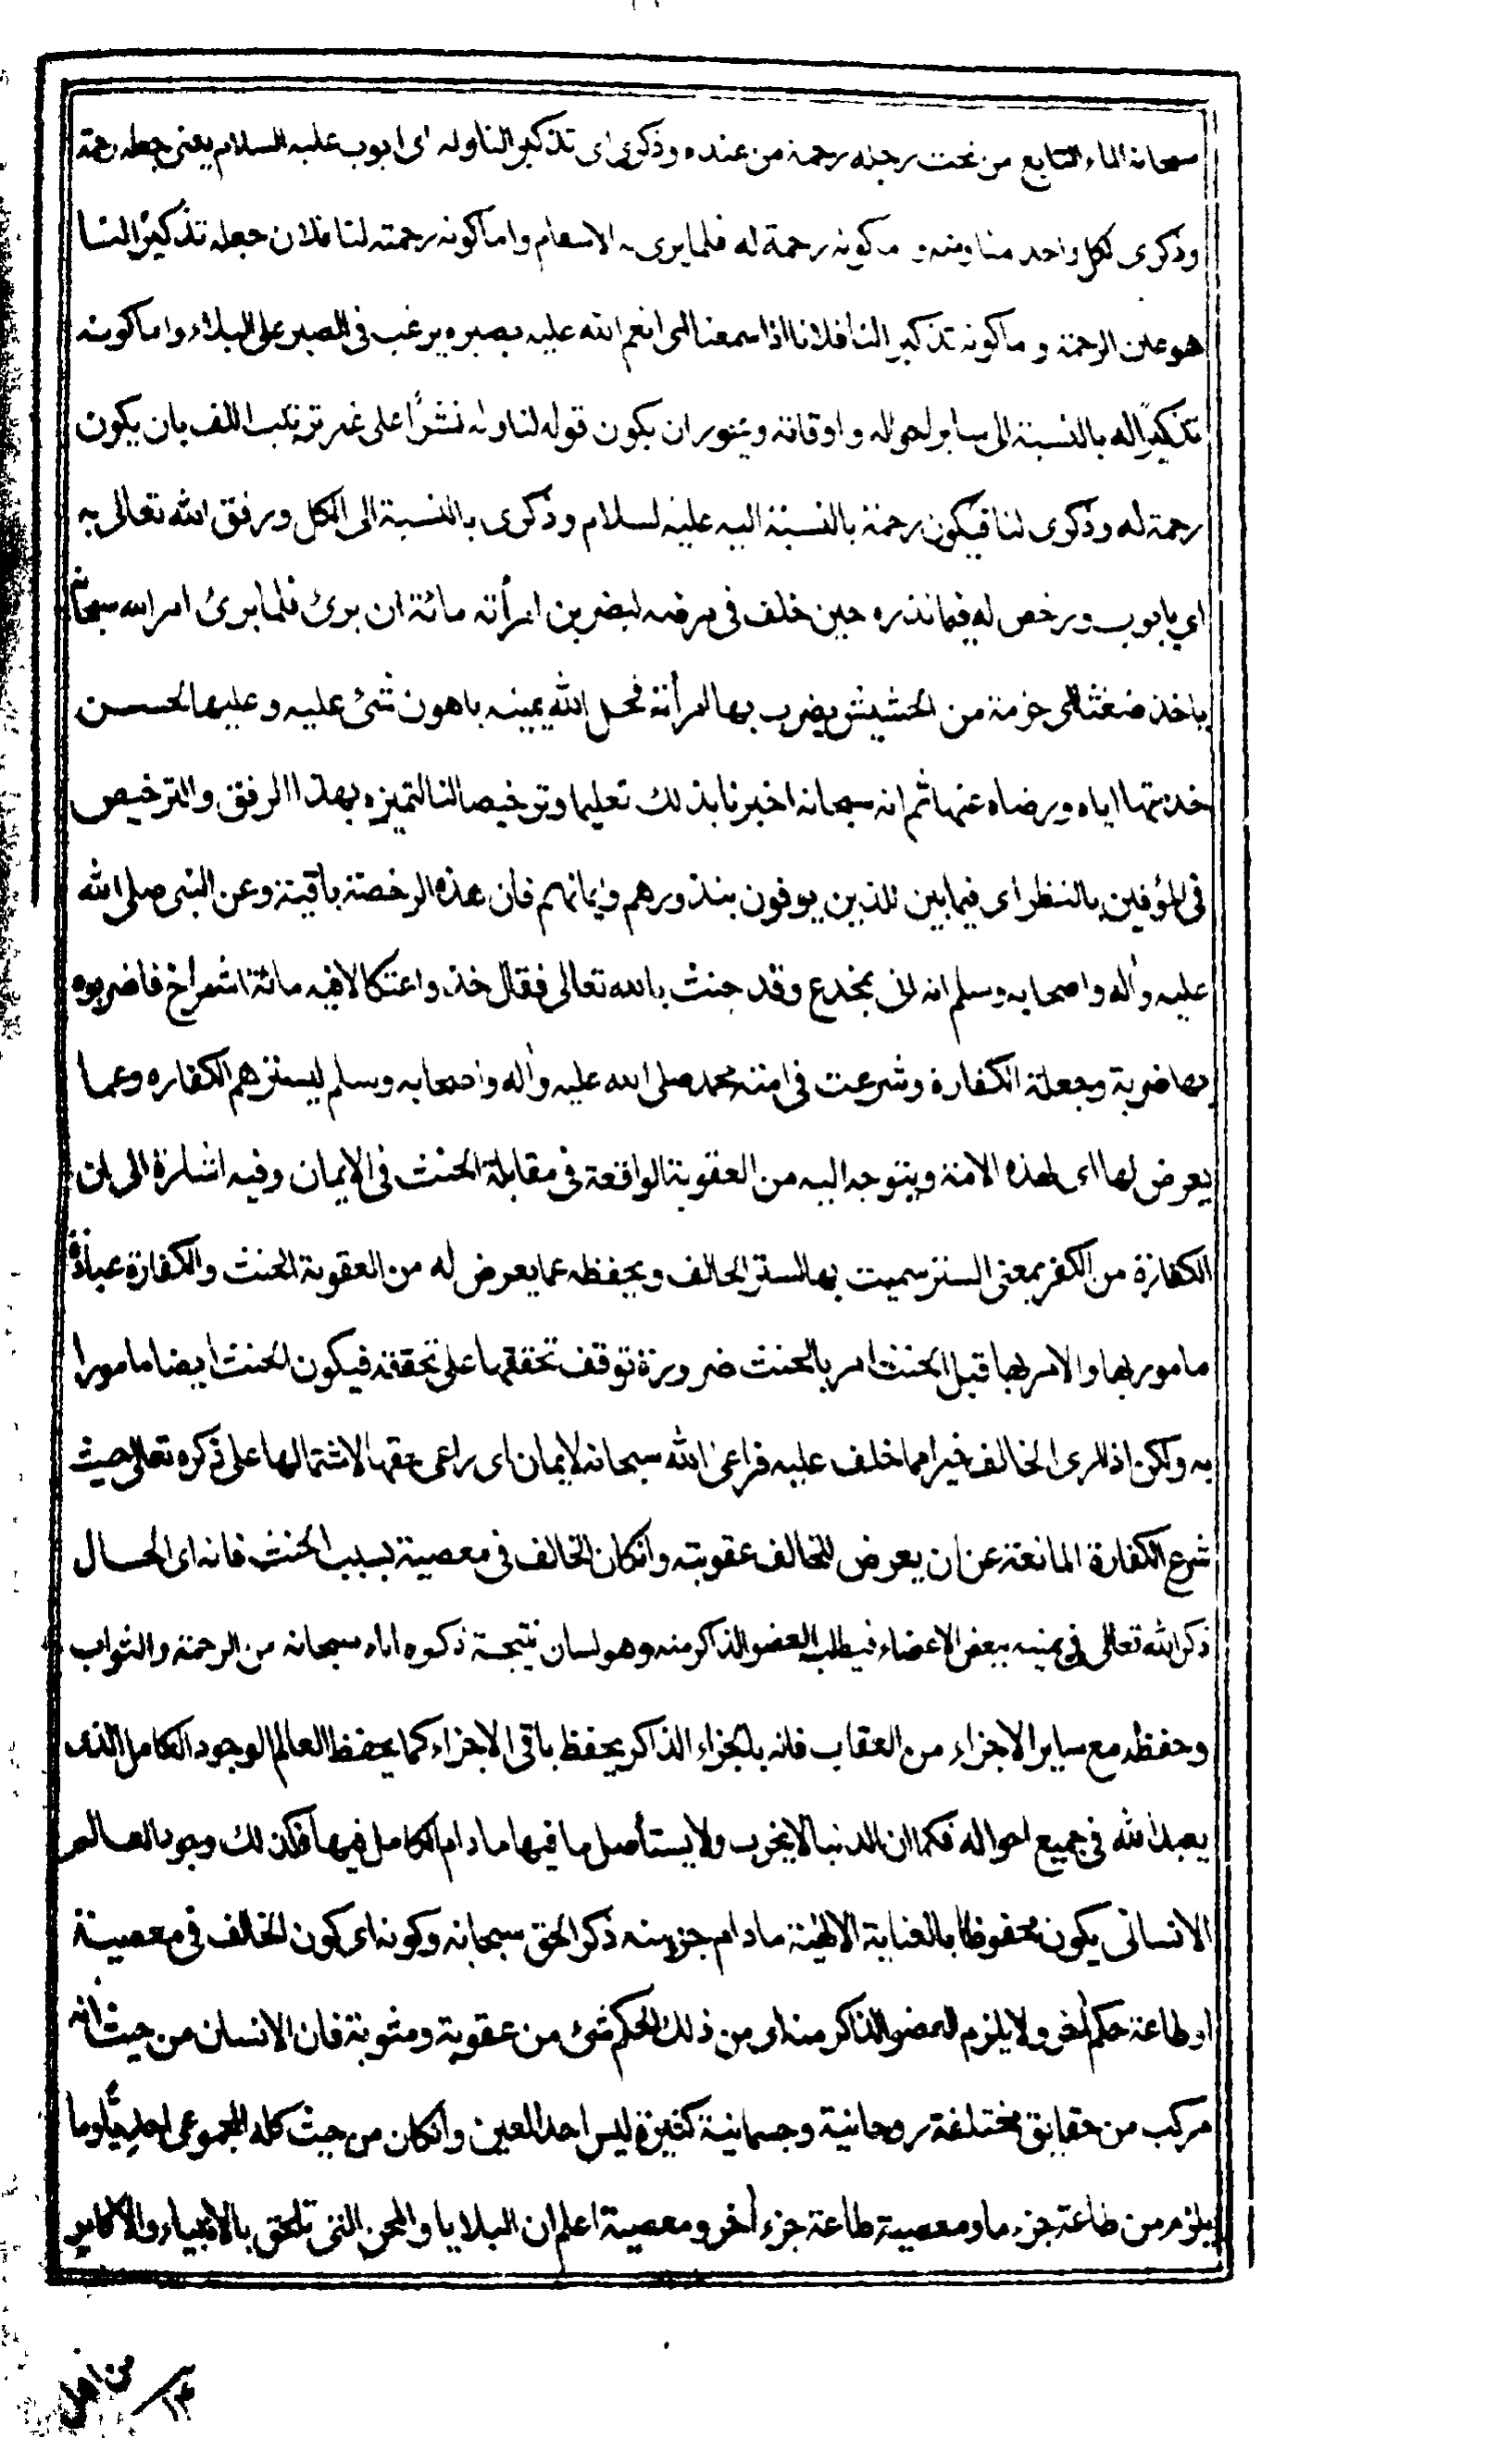 سبحانه الماء النابع من تحت رجله رحمة من عنده وذكرى اى تذكيرا لنا وله اى ايوب عليه السلام يعنى جعله رحمة
وذكرى لكل واحد منا ومنه و كونه رحمة له فلما يرى الاسقام واما كونه رحمته لنا فلان جعله تذكيرا لنا
هو عين الرحمة و ما كونه تذكيرا لنا فلانا اذا سمعنا انعم الله عليه بصبره يرغب فى الصبر على البلاء واما كونه
تذكيرًا له بالنسبة الى ساير احواله و اوقاته و ان يكون قوله لنا وله نشرًا على غير ترتيب اللف بان يكون
رحمة له وذكرى لنا فيكون رحمة بالنسبة اليه عليه لسلام وذكرى بالنسبة الى الكل ورفق الله تعالى به
اي بايوب ورخص له فيما نذره حين خلف فى مرضه ليضربن امرأته مائة ان برئ فلما برئ امر الله سبحانه
باخذ ضغثا اى حزمة من الحشيش يضرب بها امرأته فحلل الله يمينه باهون شئ عليه وعليها لحسن
خدمتها اياه ورضاه عنها ثم انه سبحانه اخبرنا بذلك تعليما وترخيصا لنا لتميزه بهذا الرفق والترخيص
فى المؤفين بالنظر اى فيما بين الذين يوفون بنذورهم وايمانهم فان هذه الرخصة باقية وعن النبى صلى الله
عليه وأله واصحابه وسلم انه اتى بمخدع وقد حنث بالله تعالى فقال خذوا عثكالا فيه مائة شمراخ فاضربوه
بها ضربة وجعلة الكفارة وشرعت فى امته محمد صلى الله عليه وأله واصحابه وسلم ليسترهم الكفاره وعما
يعرض لها اى لهذه الامة ويتوجه اليه من العقوبة الواقعة فى مقابلة الحنث فى الايمان وفيه اشارة الى ان
الكفارة من الكفر بمعنى الستر سميت بها لستر الحالف ويحفظه عما يعرض له من العقوبة الحنث والكفارة عبادة
مامور بها والامر بها قبل الحنث امر بالحنث ضرورة توقف تحققها على تحققه فيكون الحنث ايضا مامورا
به ولكن اذا رى الخالف خيرا مما خلف عليه فراعى الله سبحانه لايمان اى راعى حقها لاشتمالها على ذكره تعالى حيث
شرع الكفارة المانعة عن ان يعرض للخالف عقوبته وانكان الخالف فى معصية بسبب الحنث فانه اى الحال
ذكر الله تعالى فى يمينه ببعض الاعضاء فيطلب العضو الذاكر منه وهو لسان نتيجة ذكره اياه سبحانه من الرحمة والثواب
وحفظه مع ساير الاجزاء من العقاب فانه بالجزاء الذاكر يحفظ باقى الاجزاء كما يحفظ العالم الوجود الكامل الذى
يعبد الله فى جميع احواله فكما ان الدنيا لا يخرب ولا يستأصل ما فيها مادام الكامل فيها فكذلك وجود العالم
الانسانى يكون محفوظا بالعناية الالهية مادام جزء منه ذكر الحق سبحانه وكونه اى كون الخالف فى معصية
او طاعة حكم أخر ولا يلزم العضو الذاكر منه اى من ذلك الحكم شئ من عقوبة ومثوبة فان الانسان من حيث أنه
مركب من حقايق مختلفة روحانية وجسمانية كثيرة ليس احد العين وانكان من حيث كله المجموعى وما
يلزم من طاعة جزء ما ومعصية طاعة جزء أخر ومعصية اعلم ان البلايا والمحن التى تلحق بالانبياء والاكابر
من اهل